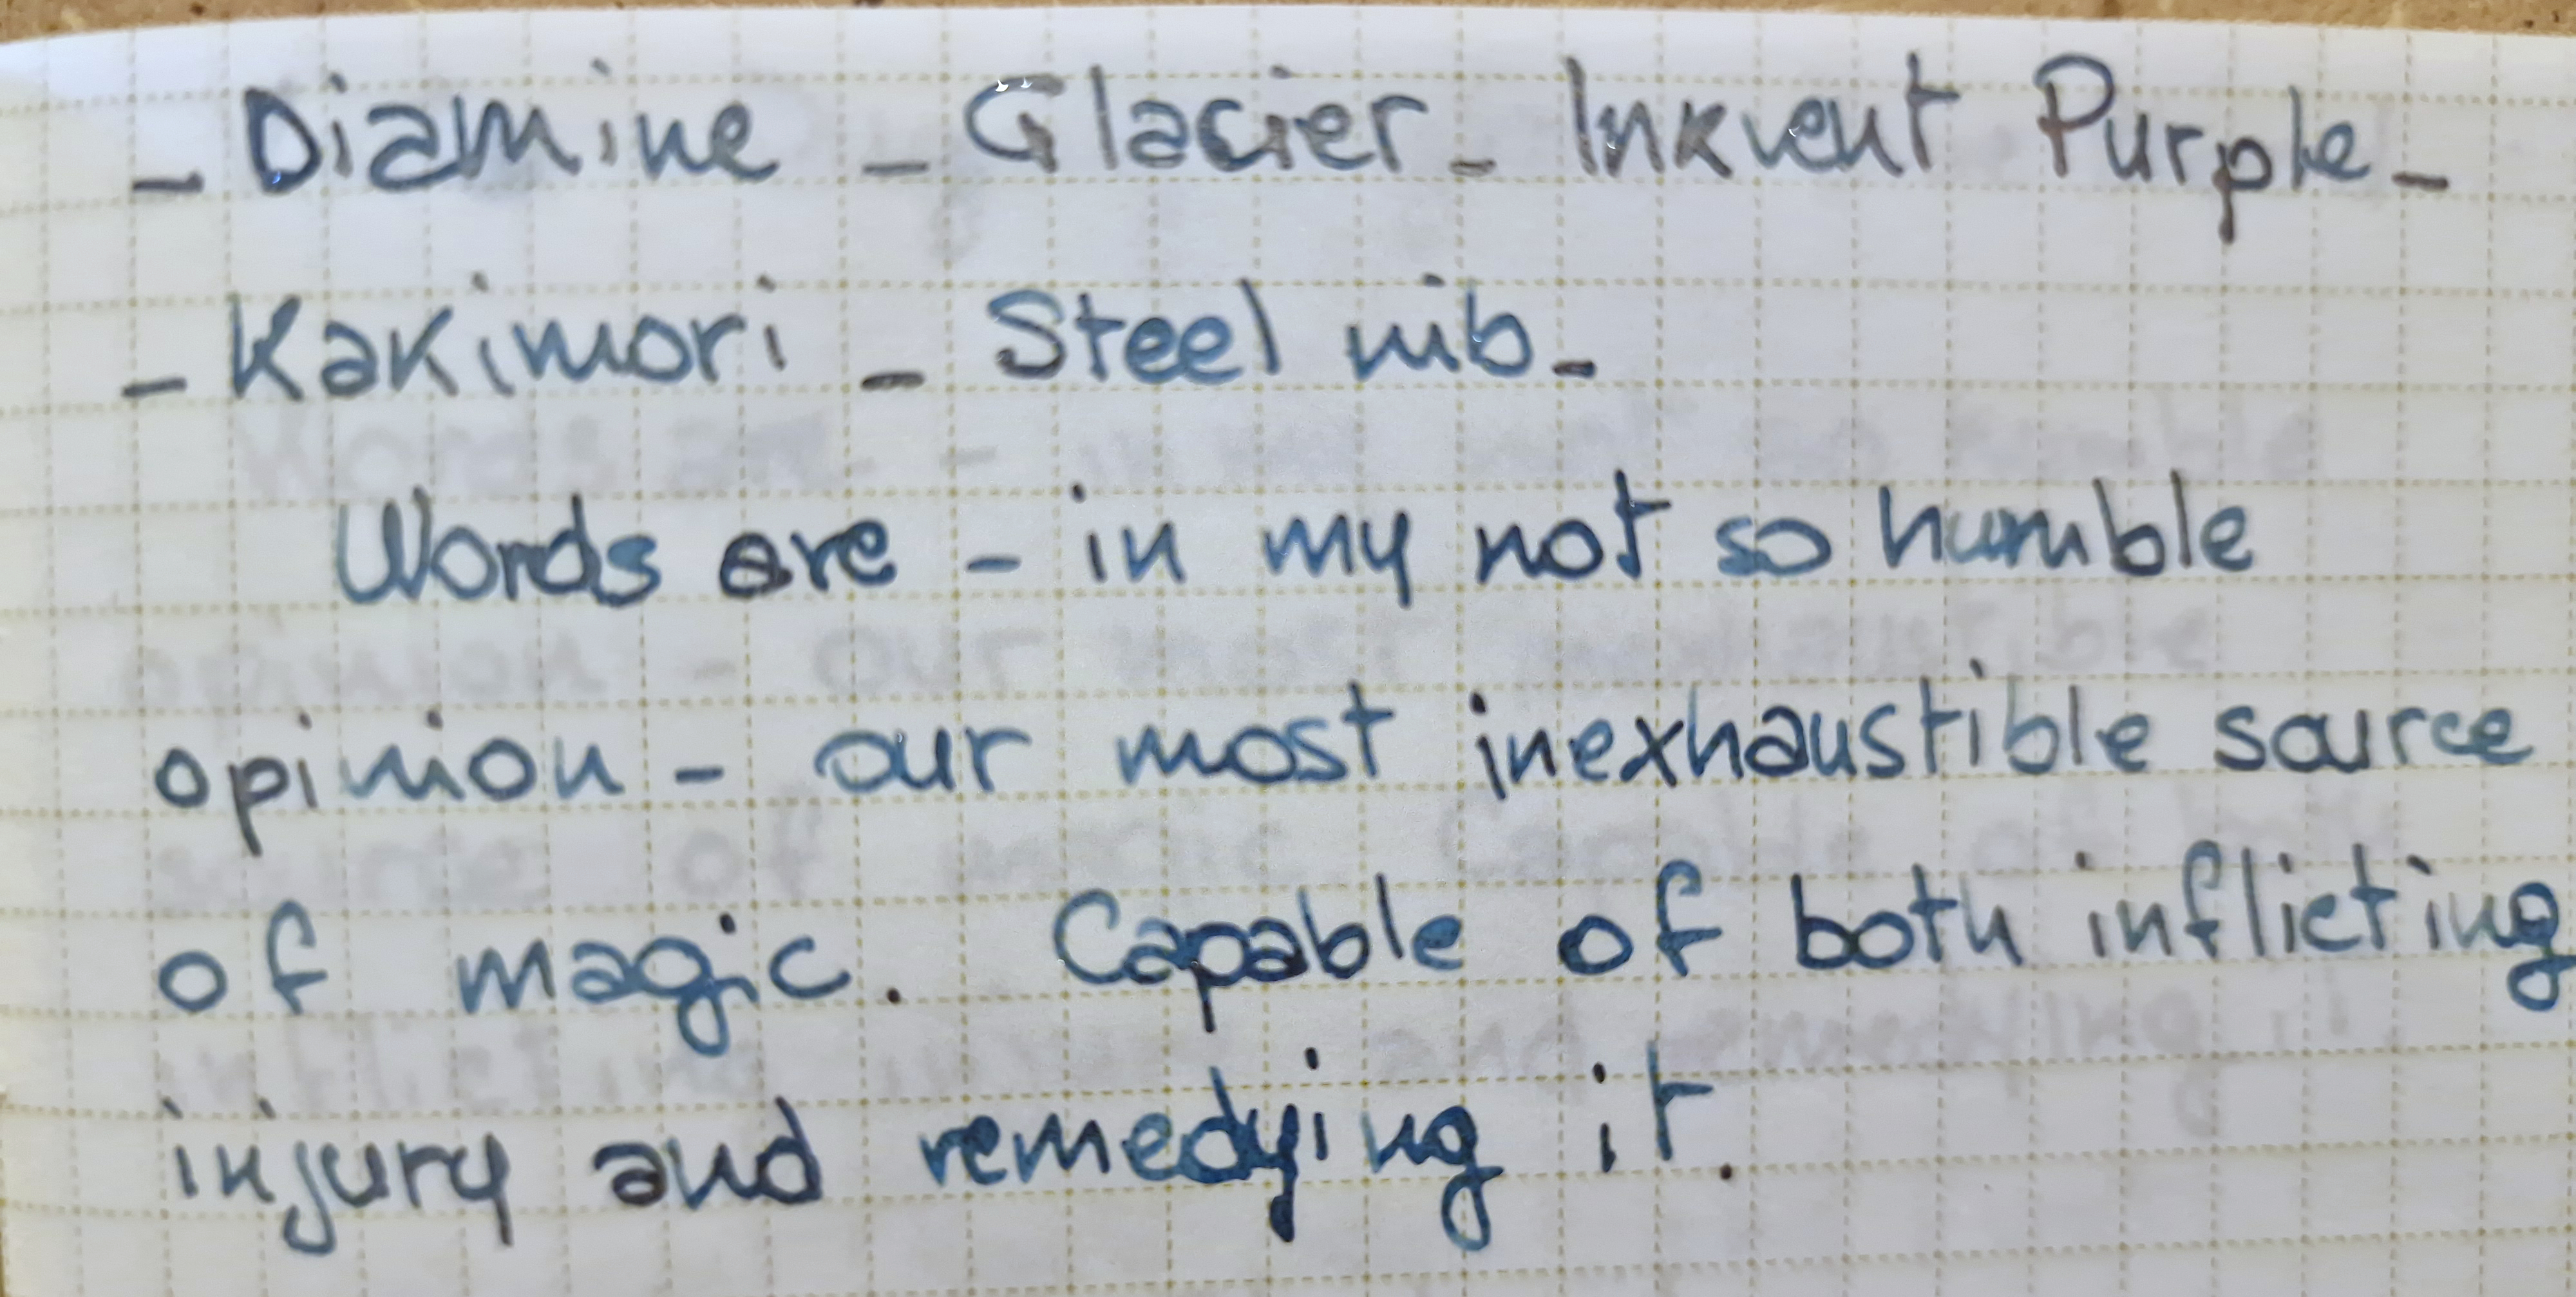 - Diamine - Glacier - Inkvent Purple -
- Kakimori - Steel nib -
Words are - in my not so humble
opinion - our most inexhaustible source
of magic. Capable of both inflicting
injury and remedying it.